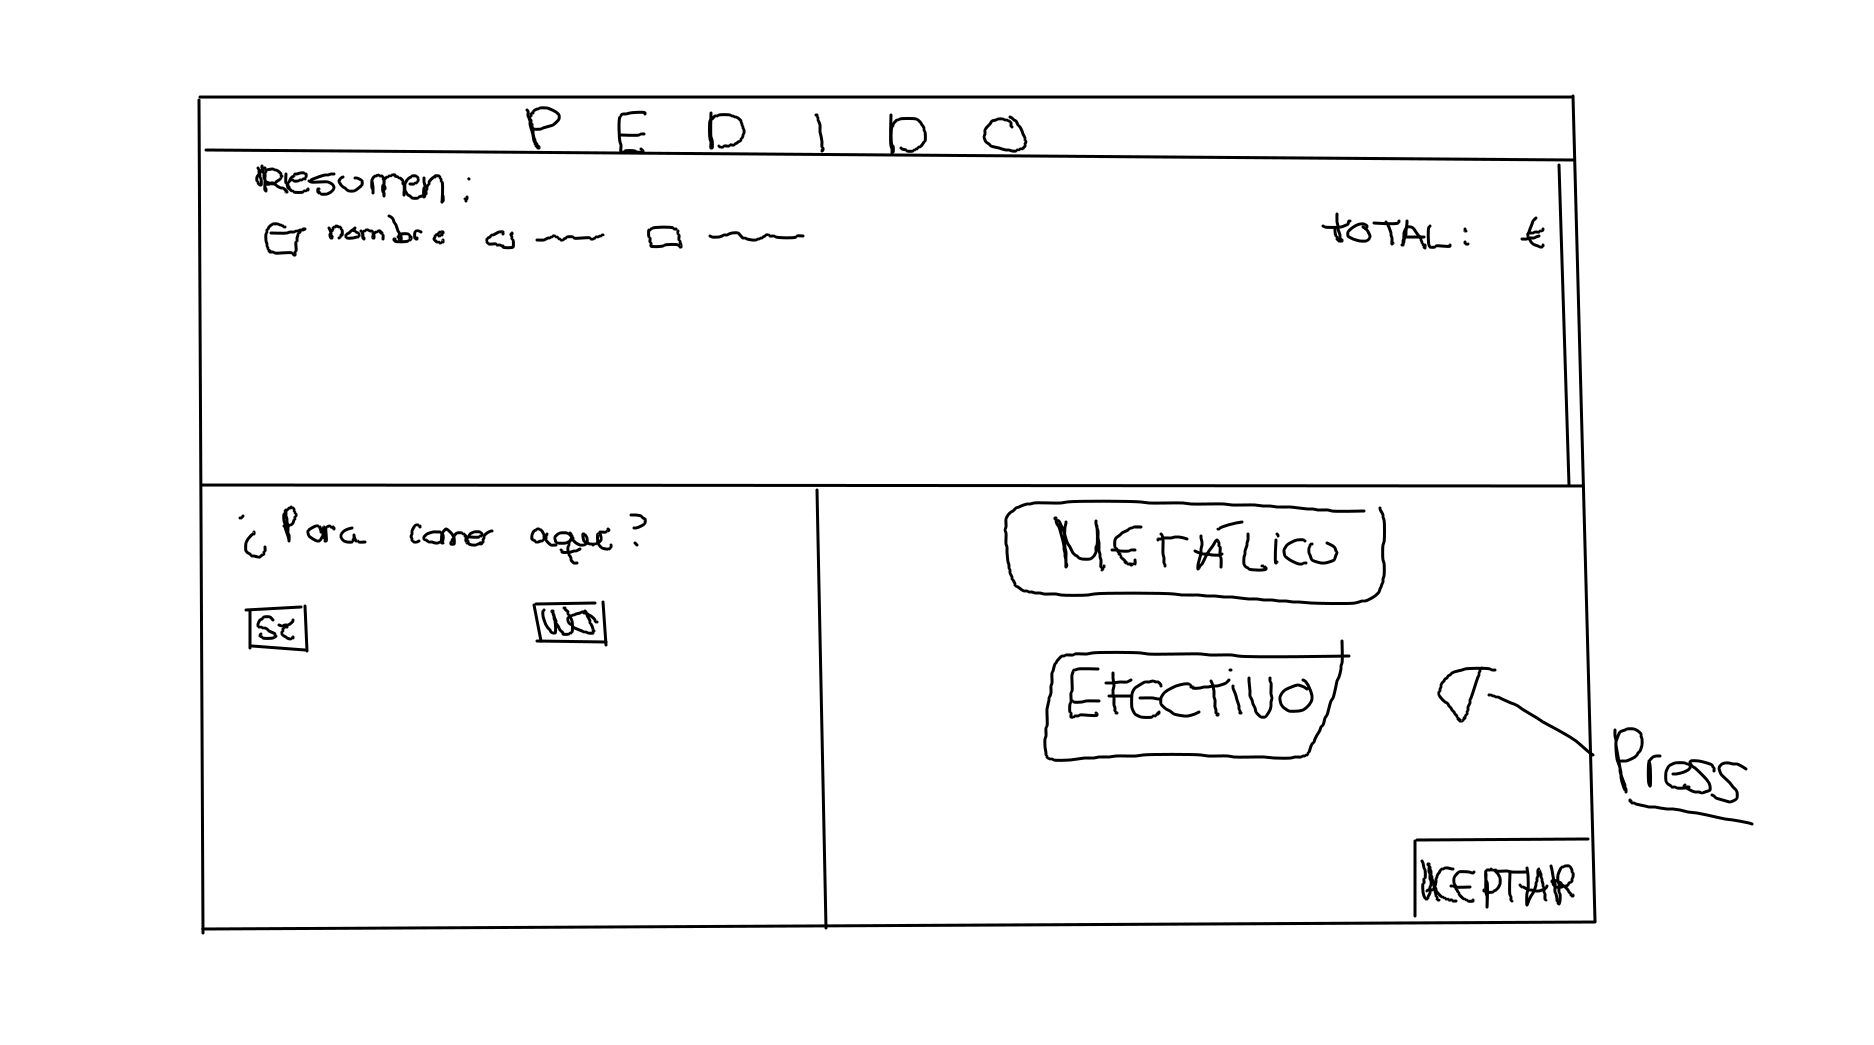 PEDIDO
Resumen:
nombre
TOTAL: €
¿Para comer aquí?
SI
NO
METÁLICO
EFECTIVO
Press
ACEPTAR